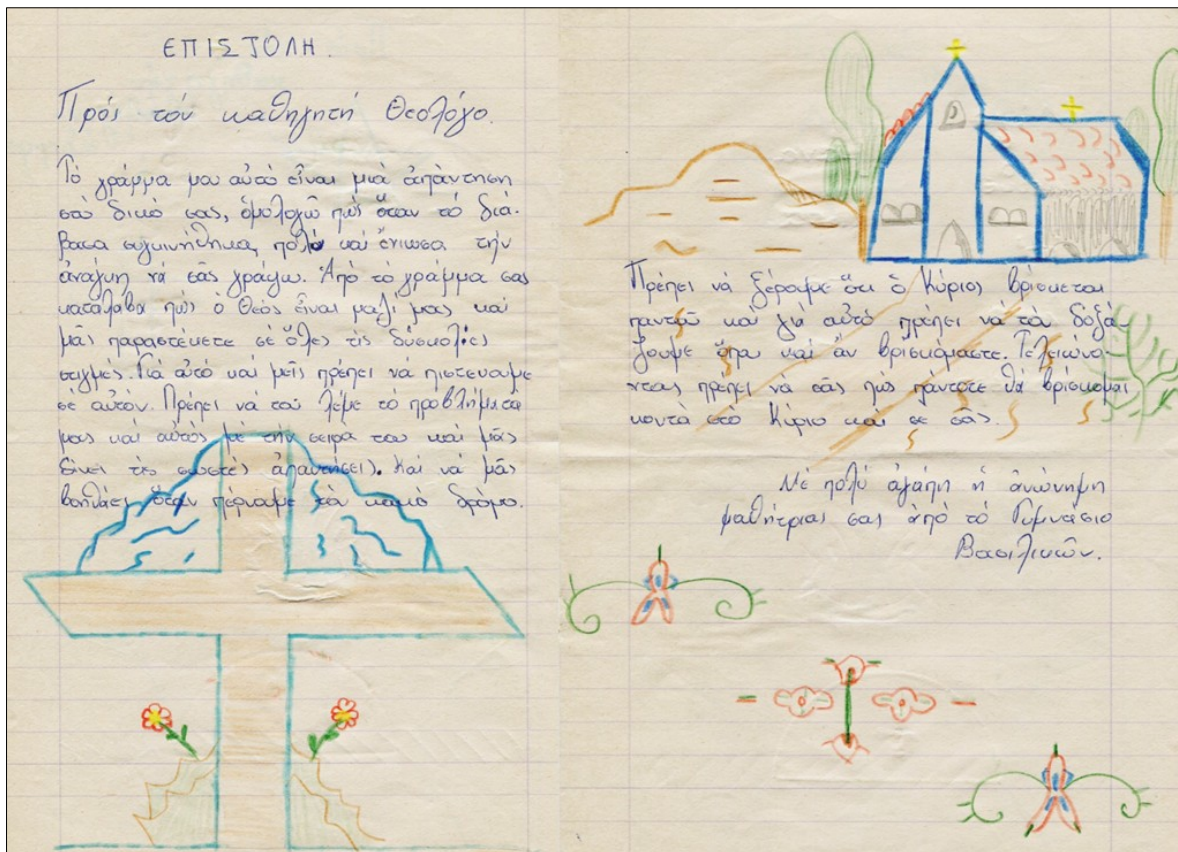 ΕΠΙΣΤΟΛΗ.
Πρός τόν καθηγητή Θεολόγο.
Τό γράμμα μου αὐτό εἶναι μιά ἀπάντηση
στό δικό σας, ὁμολογῶ πώς ὅταν τό διά-
βασα συγκινήθηκα πολύ καί ἔνιωσα τήν
ἀνάγκη νά σᾶς γράψω. Ἀπό τό γράμμα σας
κατάλαβα πώς ὁ Θεός εἶναι μαζί μας καί
μᾶς παραστέκετε σέ ὅλες τίς δύσκολες
στιγμές. Γιά αὐτό καί μεῖς πρέπει νά πιστεύουμε
σέ αὐτόν. Πρέπει νά τοῦ λέμε τό προβλήματα
μας καί αὐτός μέ τήν σειρά του καί μᾶς
δίνει τίς σωστές ἀπαντήσεις. Καί νά μᾶς
βοηθάει ὅταν πέρναμε τόν κακό δρόμο.
Πρέπει νά ξέραμε ὅτι ὁ Κύριος βρίσκεται
παντοῦ καί γιά αὐτό πρέπει νά τόν δοξά-
ζουμε ὅπου καί ἄν βρισκόμαστε. Τελειώνο-
ντας πρέπει νά σᾶς πώς πάντοτε θά βρίσκομαι
κοντά στό Κύριο καί σε σᾶς.
Μέ πολύ ἀγάπη ἡ ἀνώνημη
μαθήτριας σας ἀπό τό Γυμνάσιο
Βασιλικῶν.